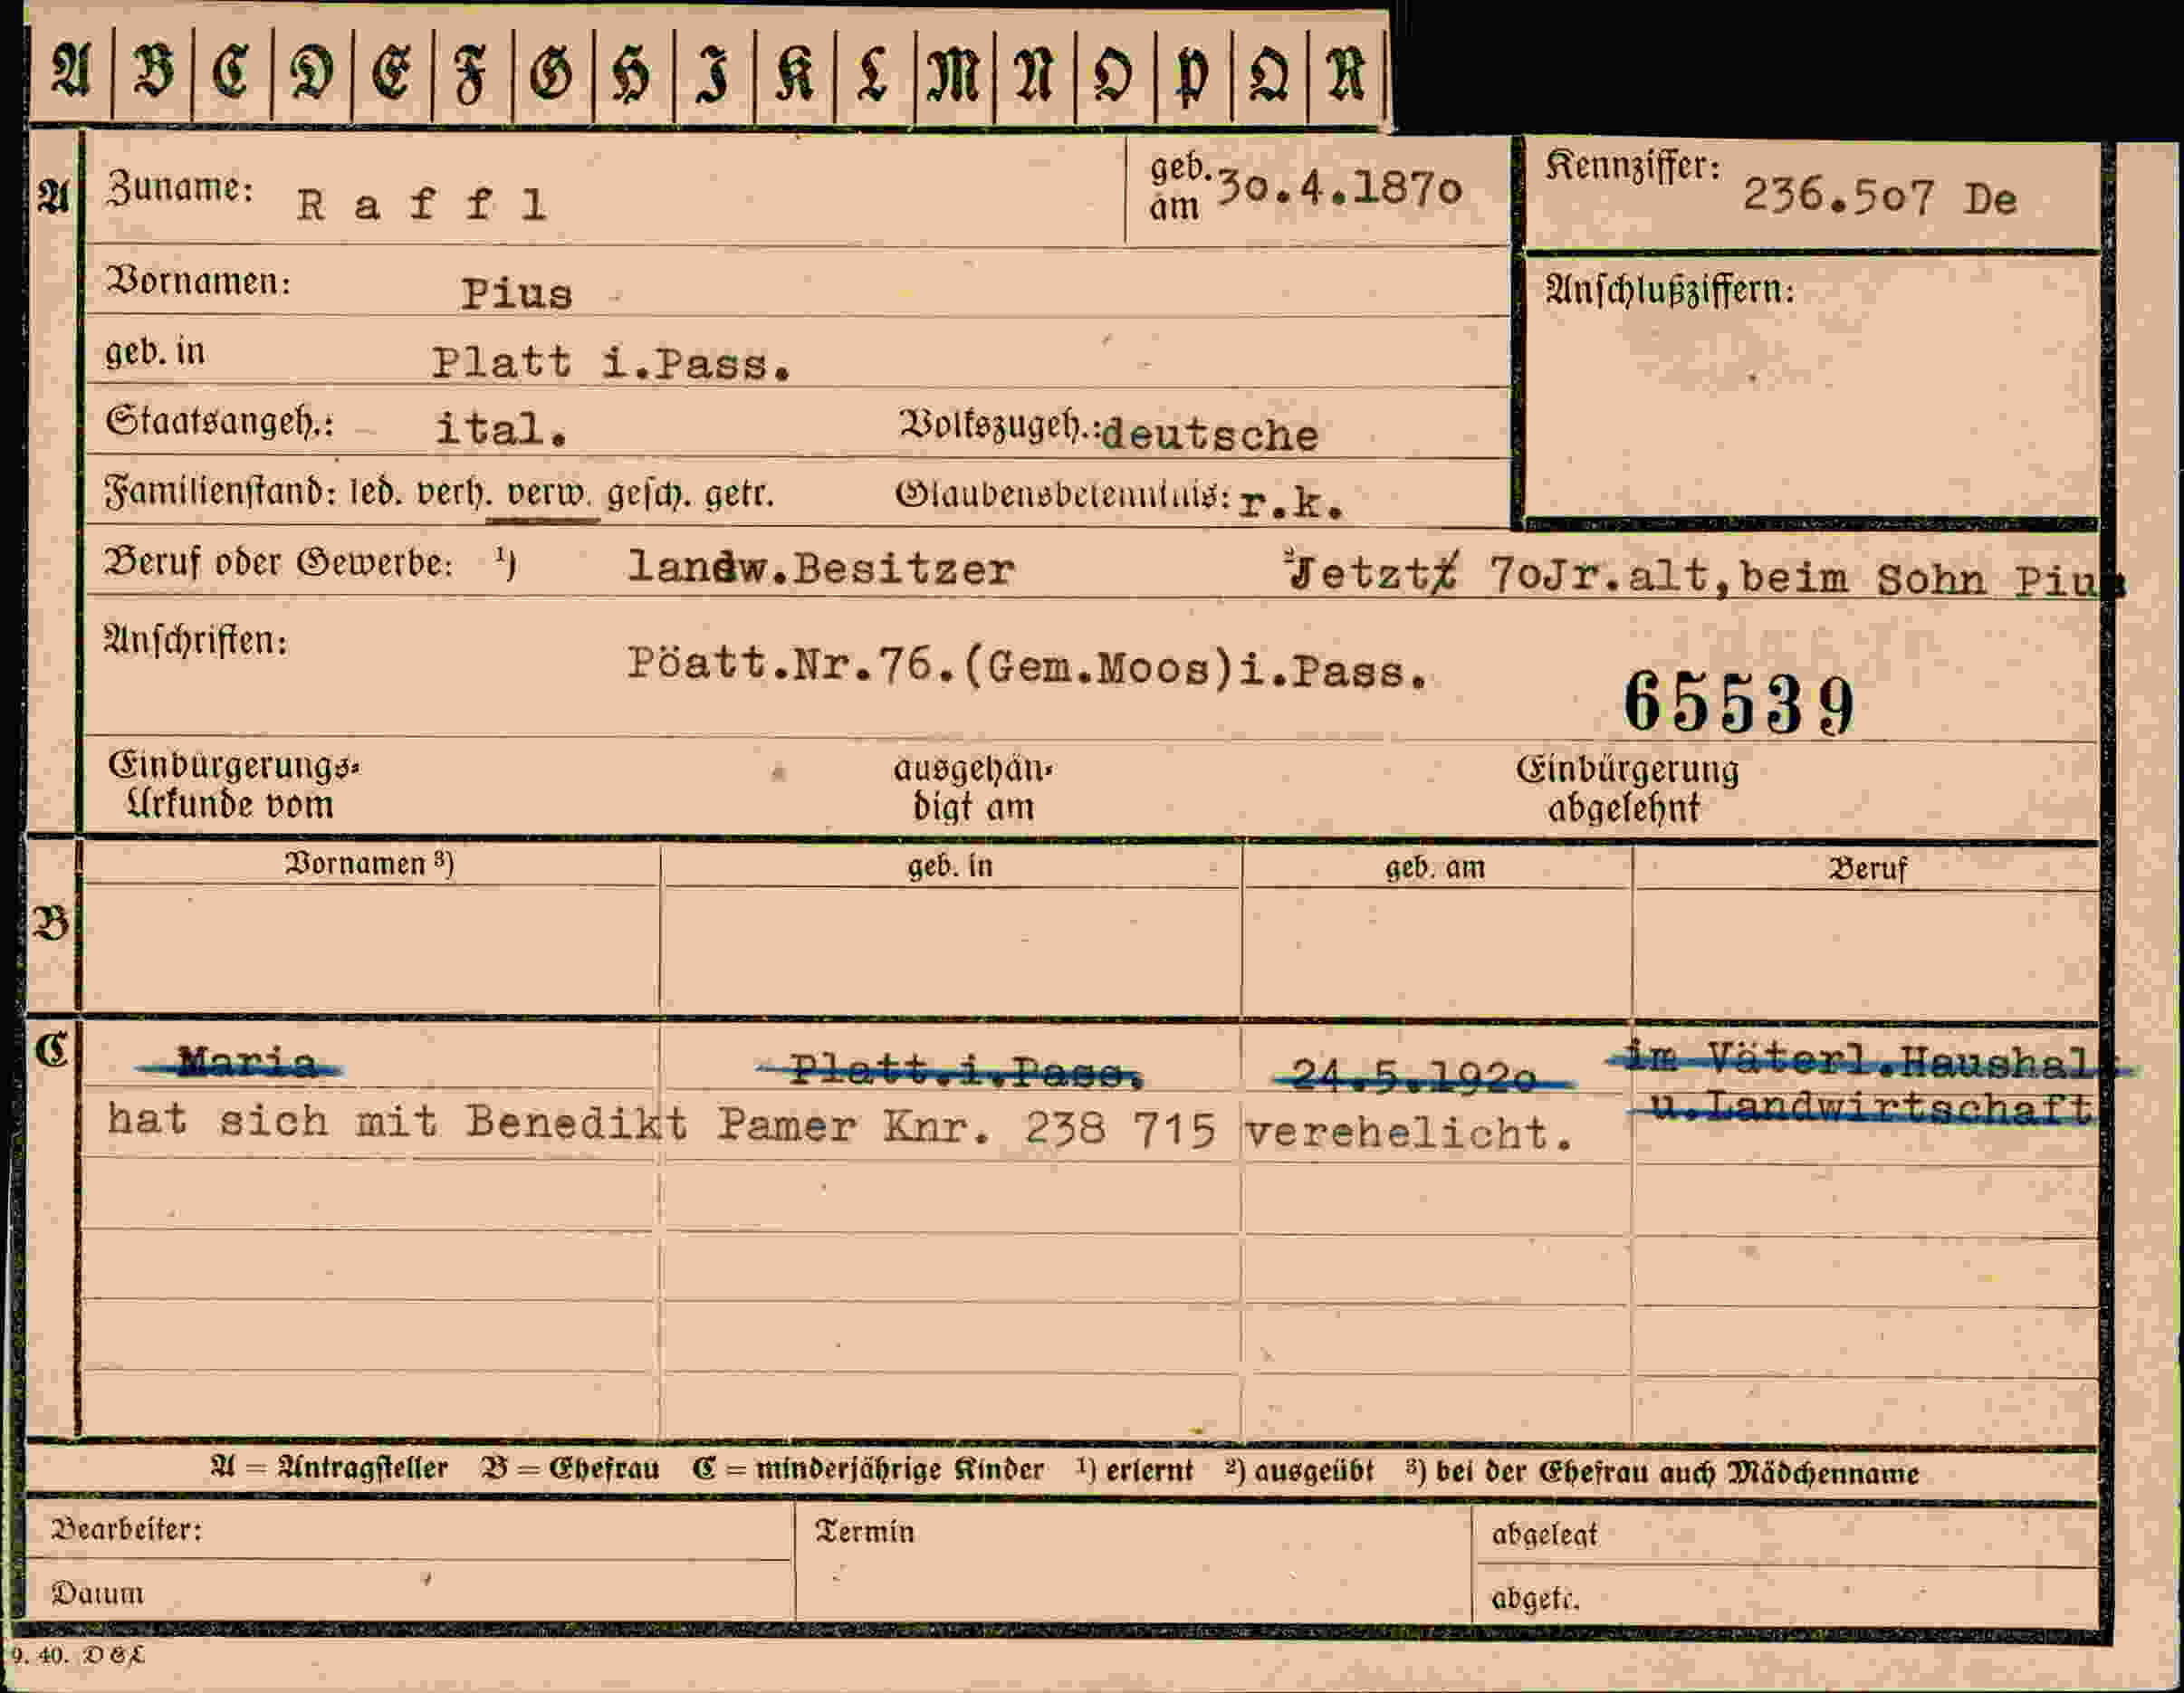 A B C D E F G H I K L M N O P Q R
A Zuname: Raffl geb. am 30.4.1870 Kennziffer: 236.507 De
Vornamen: Pius Anschlußziffern:
geb. in Platt i.Pass.
Staatsangeh.: ital. Volkszugeh.: deutsche
Familienstand: led. verh. verw. gesch. getr. Glaubensbekenntnis: r.k.
Beruf oder Gewerbe: 1) landw.Besitzer 2) Jetzt 70Jr.alt,beim Sohn Pius
Anschriften: Pöatt.Nr.76.(Gem.Moos)i.Pass.
65539
Einbürgerungs- ausgehän- Einbürgerung
Urkunde vom digt am abgelehnt
Vornamen 3) geb. in geb. am Beruf
B
C Maria Platt.i.Pass. 24.5.1920 im Väterl.Haushalt
u.Landwirtschaft
hat sich mit Benedikt Pamer Knr. 238 715 verehelicht.
A = Antragsteller B = Ehefrau C = minderjährige Kinder 1) erlernt 2) ausgeübt 3) bei der Ehefrau auch Mädchenname
Bearbeiter: Termin abgelegt
Datum abgetr.
9. 40. DEL